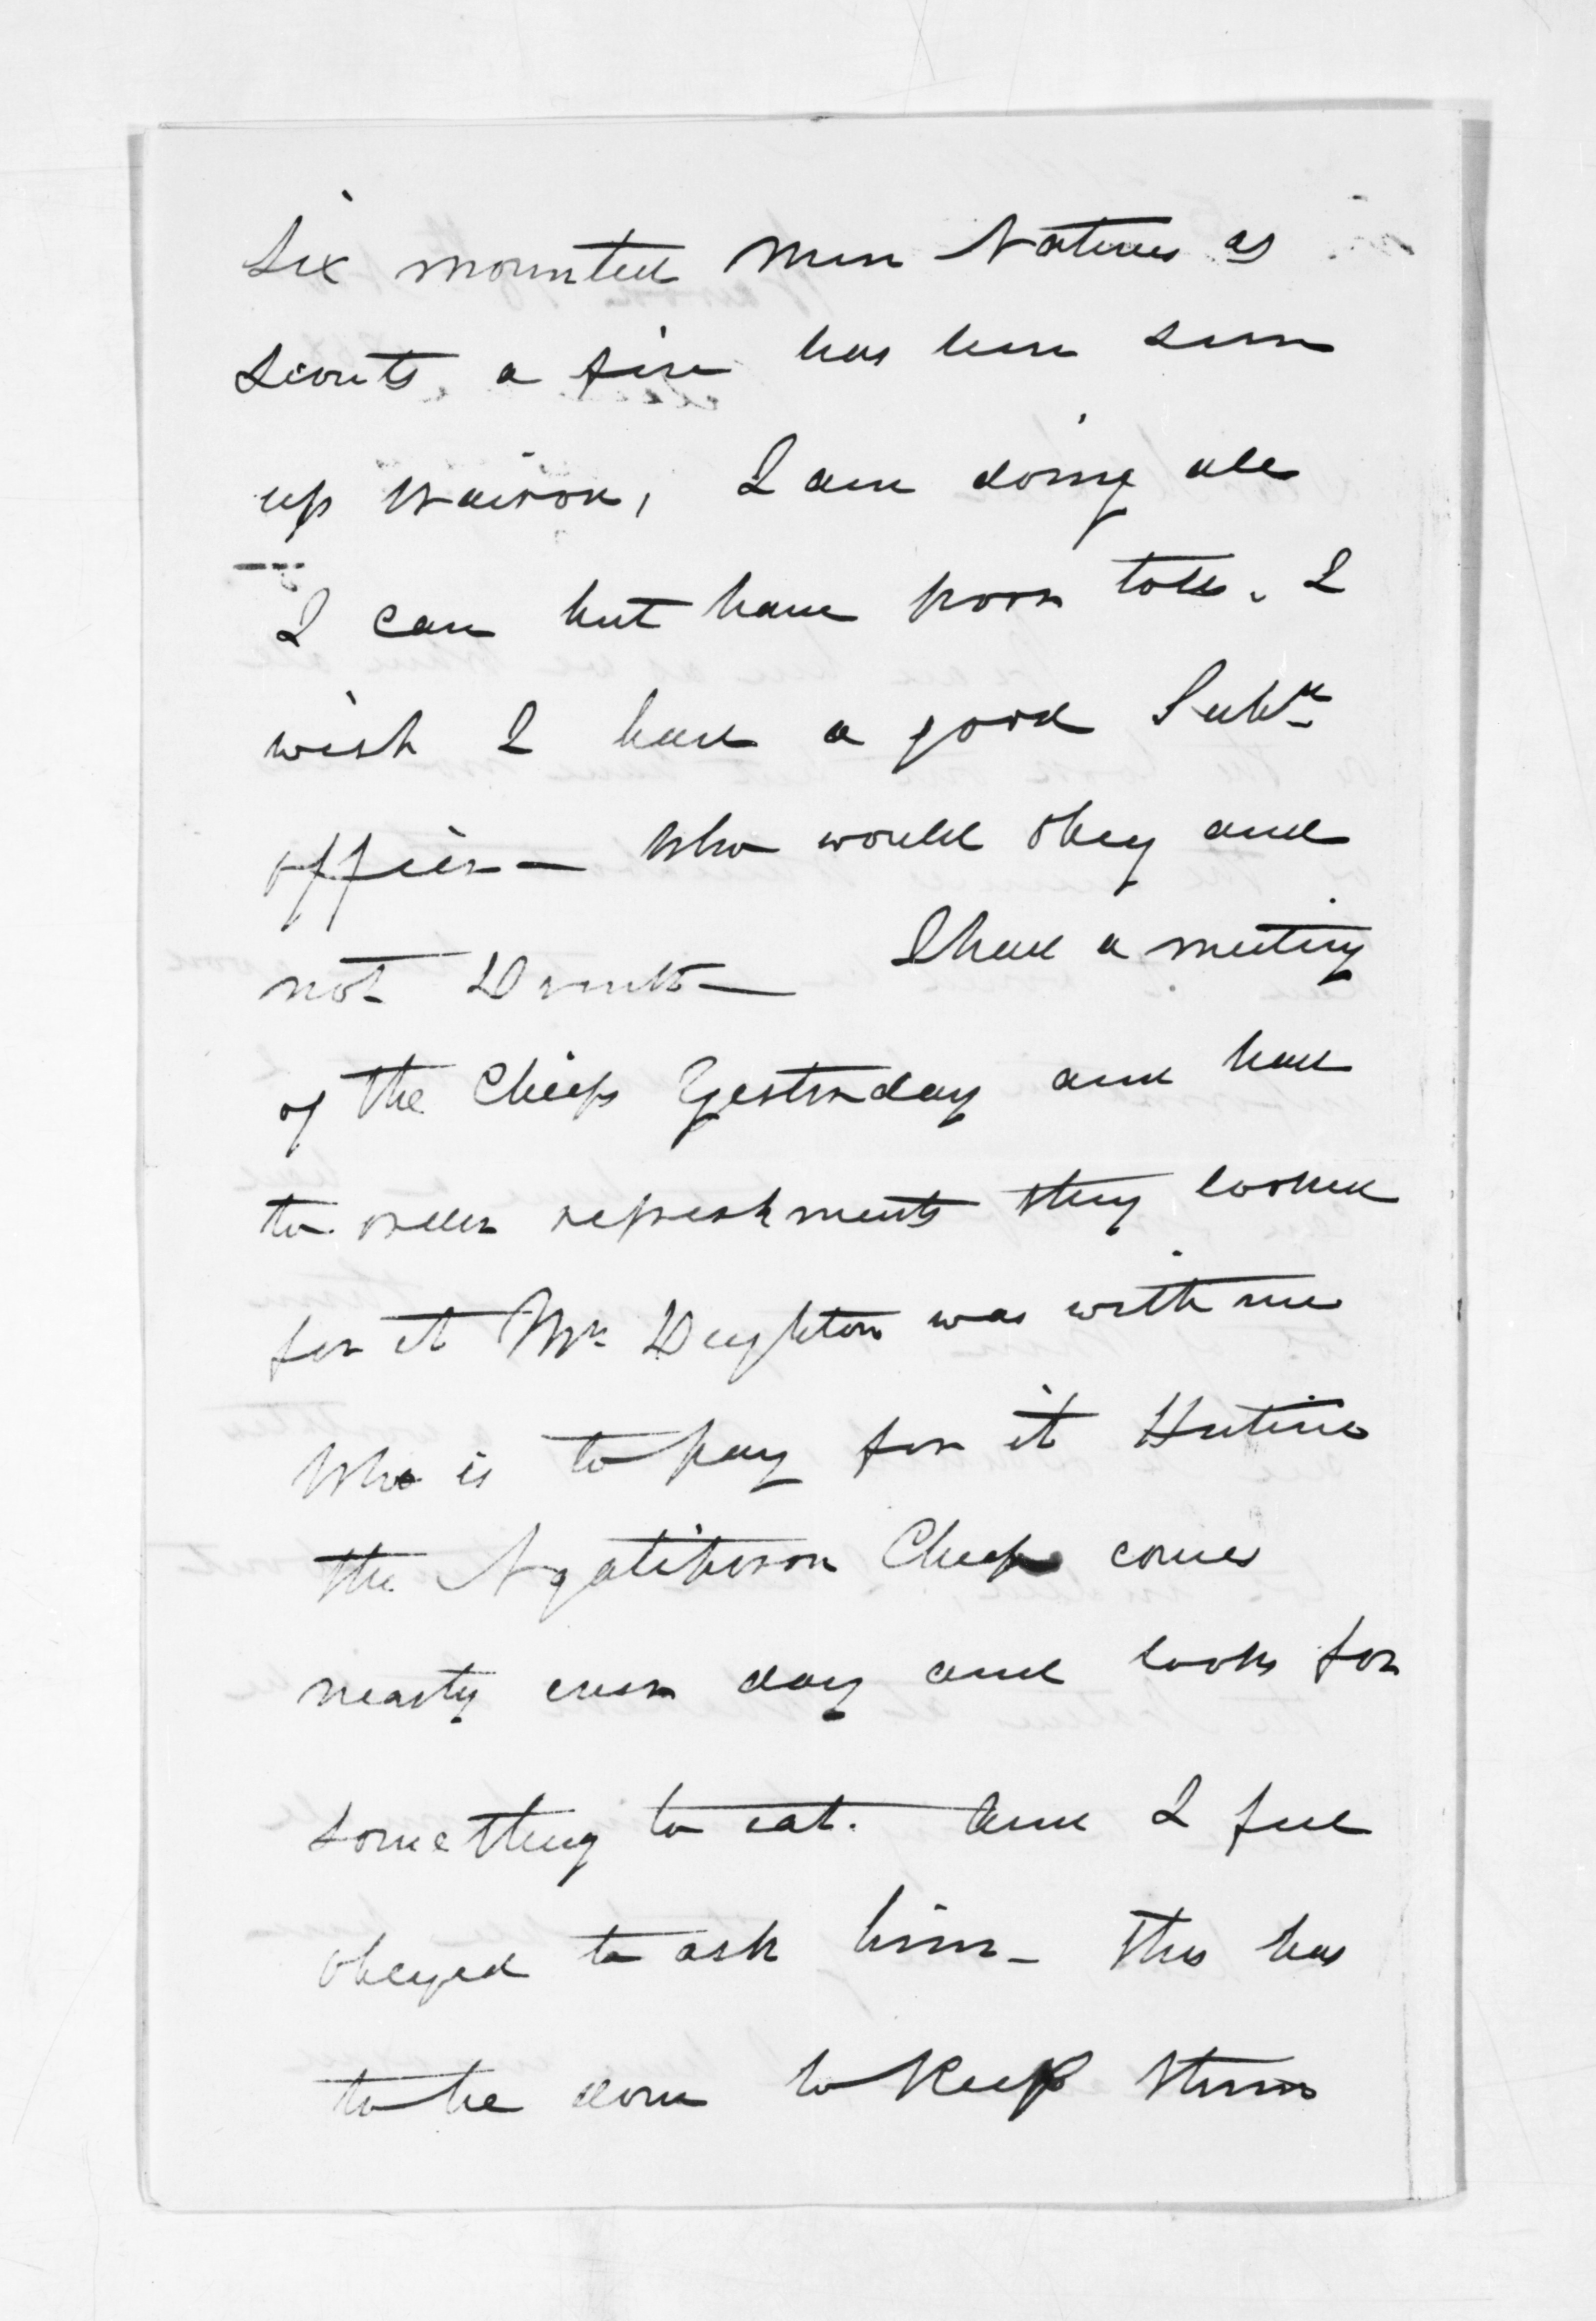 Six mounted Men Natives as
Scouts a fire has been seen
up Wairoa, I am doing all
I can but have poor tools. I
wish I had a good Subn
officer — Who would obey and
not Drink — I had a meeting
of the Chiefs Yesterday and had
to order refreshments they looked
for it Mr Deighton was with me
Who is to pay for it
the Ngatiporou Chief comes
nearly ever day and looks for
something to eat. And I feel
obeyed to ask him — This has
to be done to Keep them